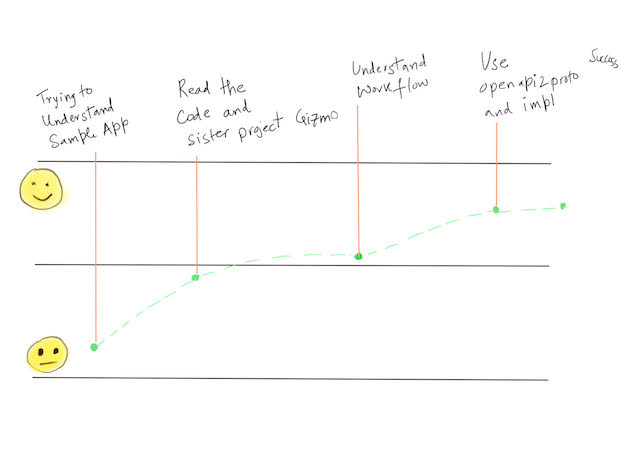 Trying to
Understand
Sample App
Read the
Code and
sister project Gizmo
Understand
Workflow
Use
openapi2proto
and impl
Success